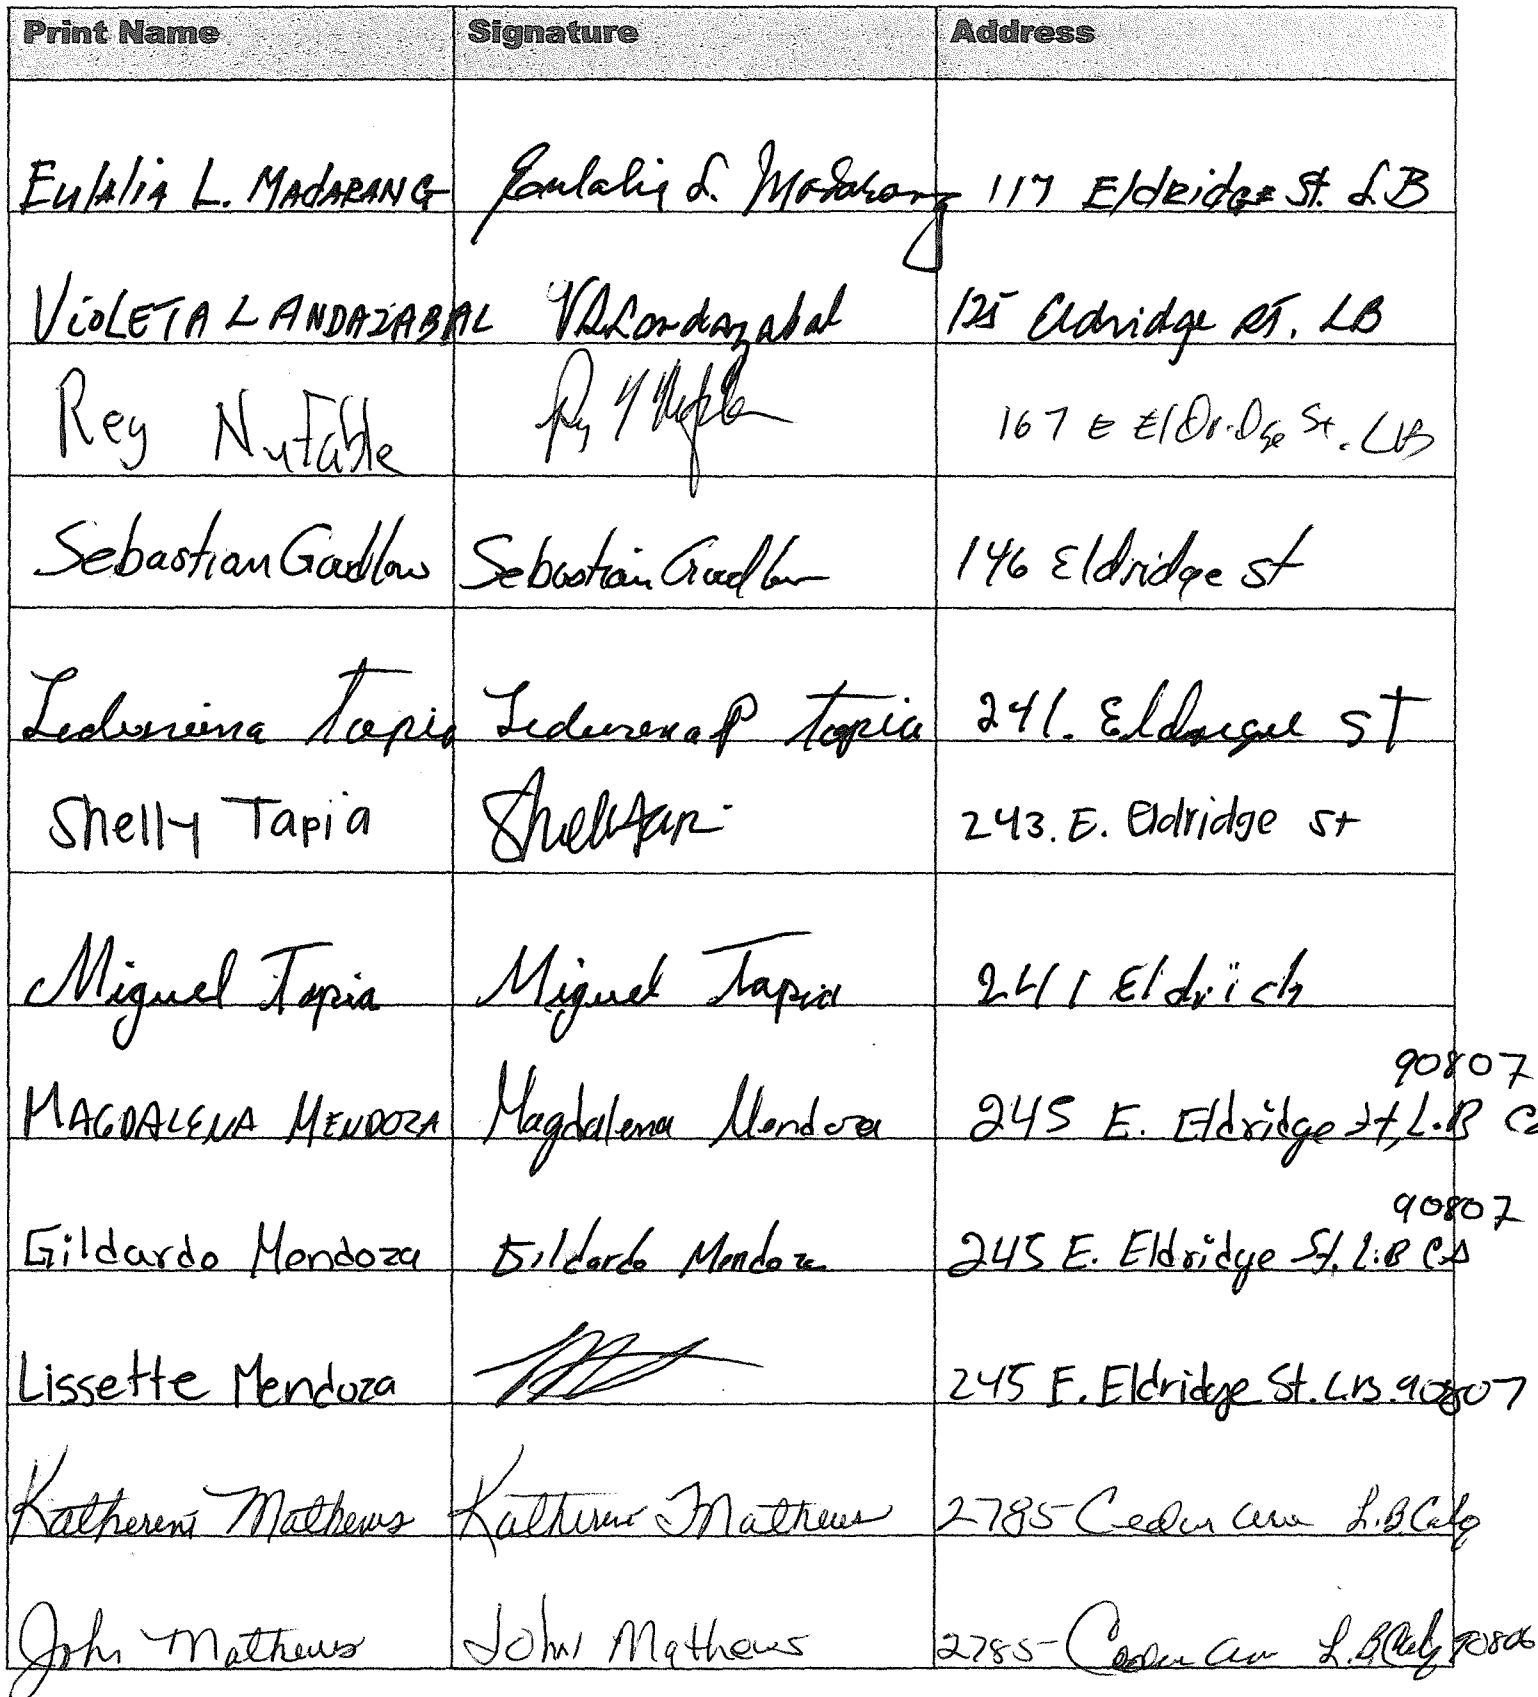 Print Name Signature Address
Eulalia L. MADARANG Eulalia L. Madarang 117 Eldridge St. L.B
VioLETA LANDAZABAL VLLandazabal 125 Eldridge St. LB
Rey Nufable 167 E ElDriDge St. LB
Sebastian Gadlow Sebastian Gadlow 146 Eldridge st
Tapia P Tapia 241. ST
Shelly Tapia 243. E. Eldridge St
Miguel Tapia Miguel Tapia 241 Eldrich
90807
MAGDALENA MENDOZA Magdalena Mendoza 245 E. Eldridge St, L.B Ca
90807
Gildardo Mendoza Gildardo Mendoza 245 E. Eldridge St. L.B CA
Lissette Mendoza 245 E. Eldridge St. LB. 90807
Mathews Mathews 2785 Cedar Ave L.B Calif
John Mathews John Mathews 2785 Cedar Ave L.B Calif 90806